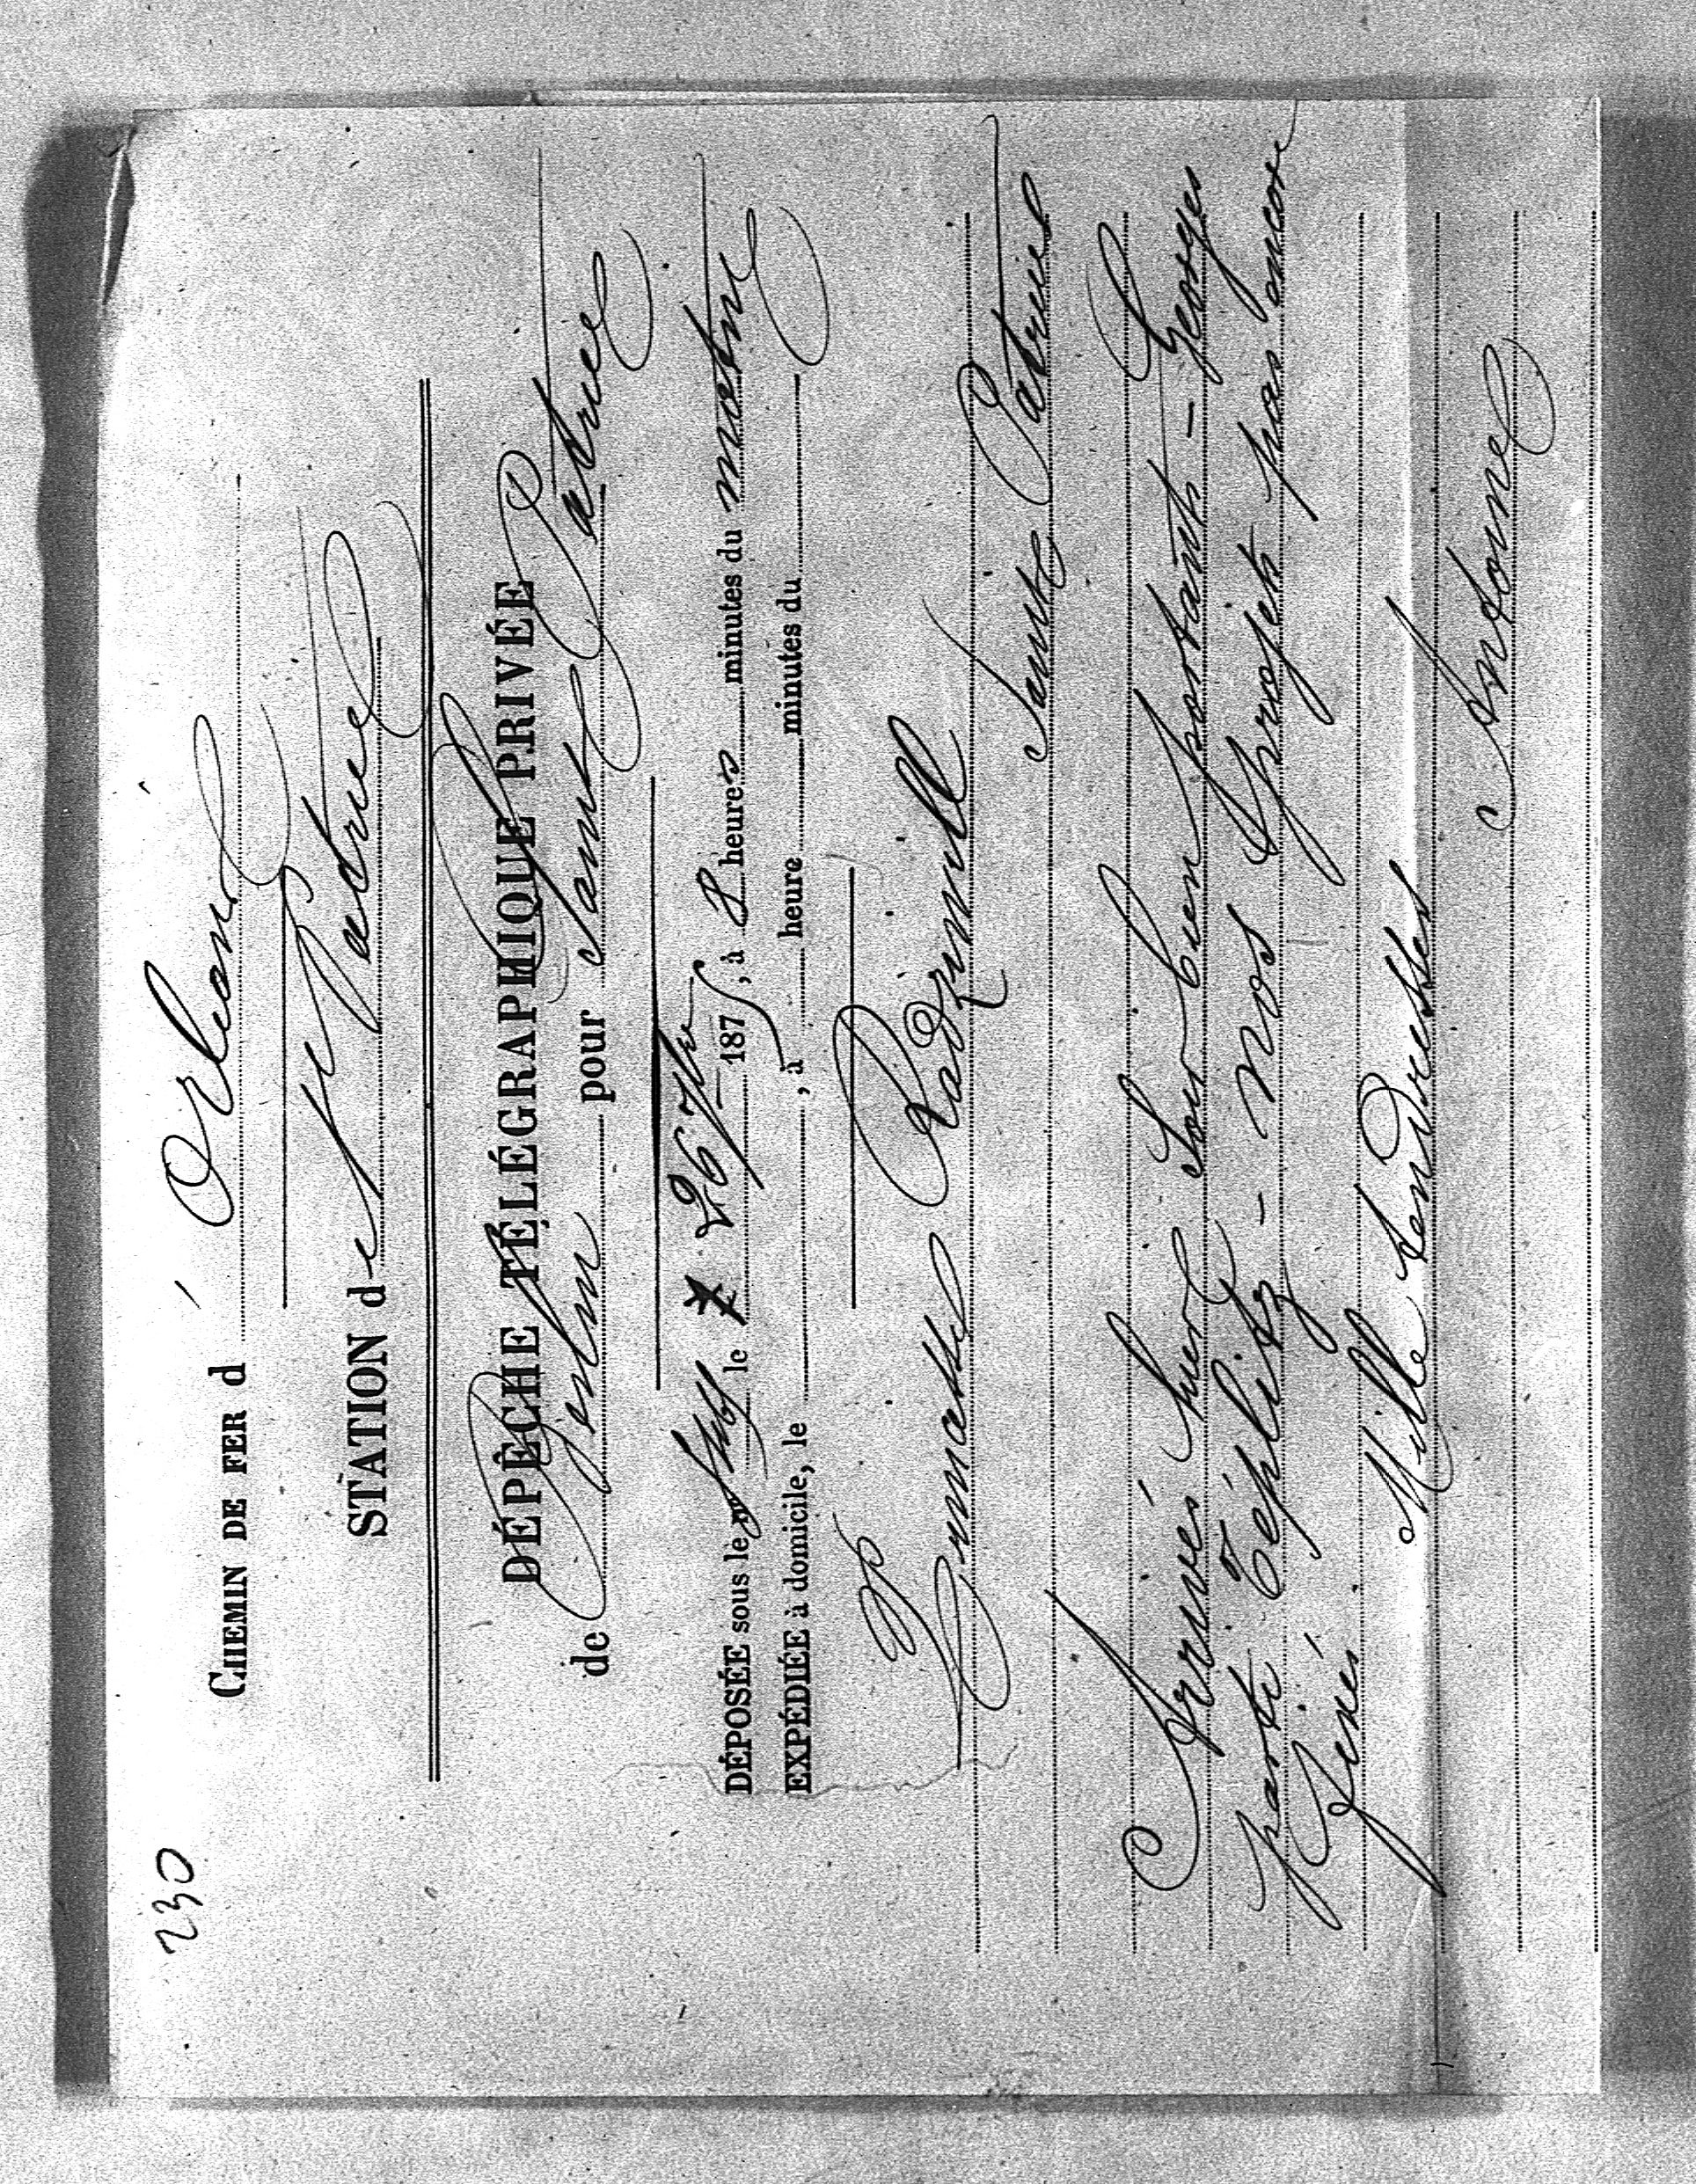 230
CHEMIN DE FER d'Orléans
STATION de St Patrice
DÉPÊCHE TÉLÉGRAPHIQUE PRIVÉE
de Berlin pour Sainte Patrice
DÉPOSÉE sous le n° le 26 7bre 1875, à 8 heures minutes du matin
EXPÉDIÉE à domicile, le , à heure minutes du
Princesse Radziwill
Sainte Patrice
Arrivés hier soir bien portants - Georges
parti Téplitz - nos projets pas encore
fixés
Mille tendresses
Antoine